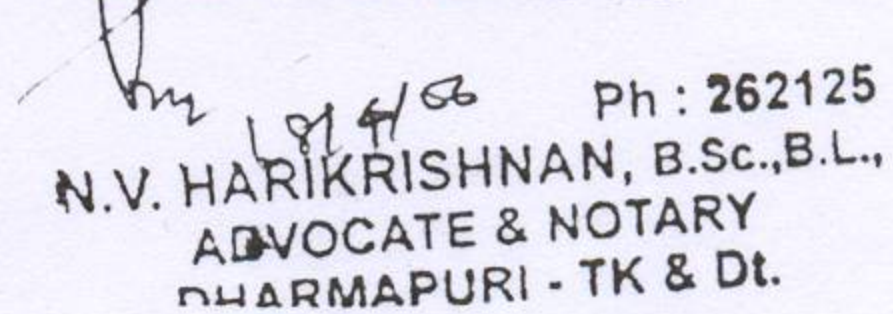 Ph : 262125
N.V. HARIKRISHNAN, B.Sc.,B.L.,
ADVOCATE & NOTARY
DHARMAPURI - TK & Dt.